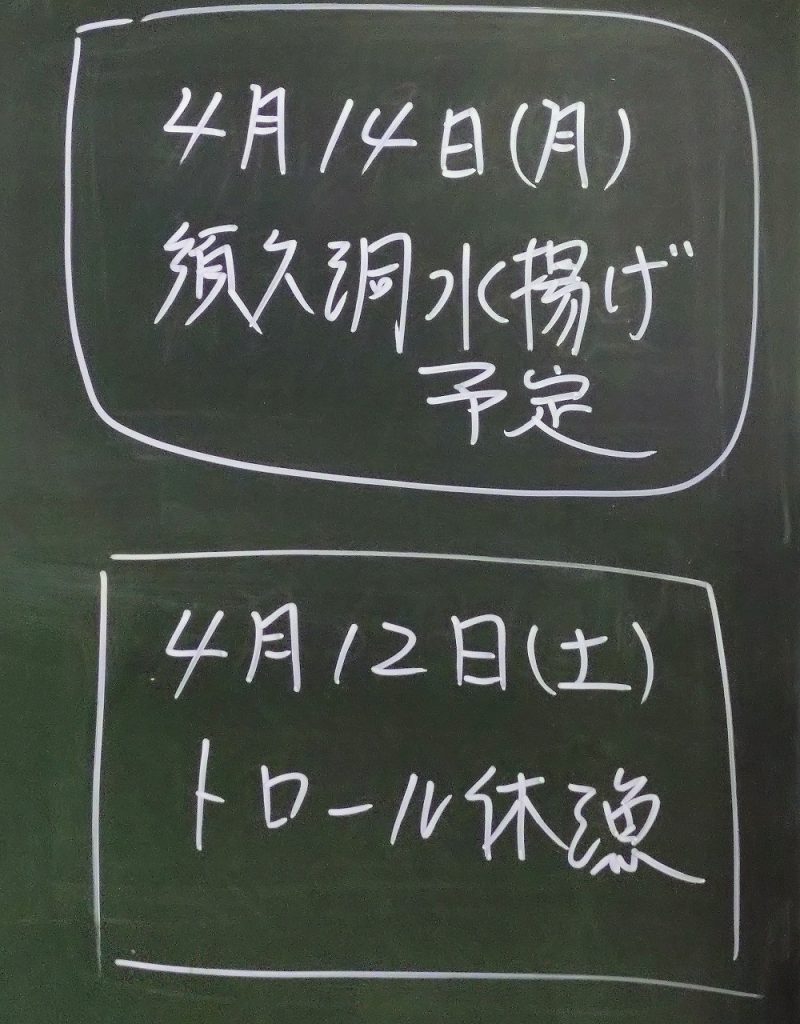 4月14日(月)
須久洞水揚げ
予定
4月12日(土)
トロール休漁